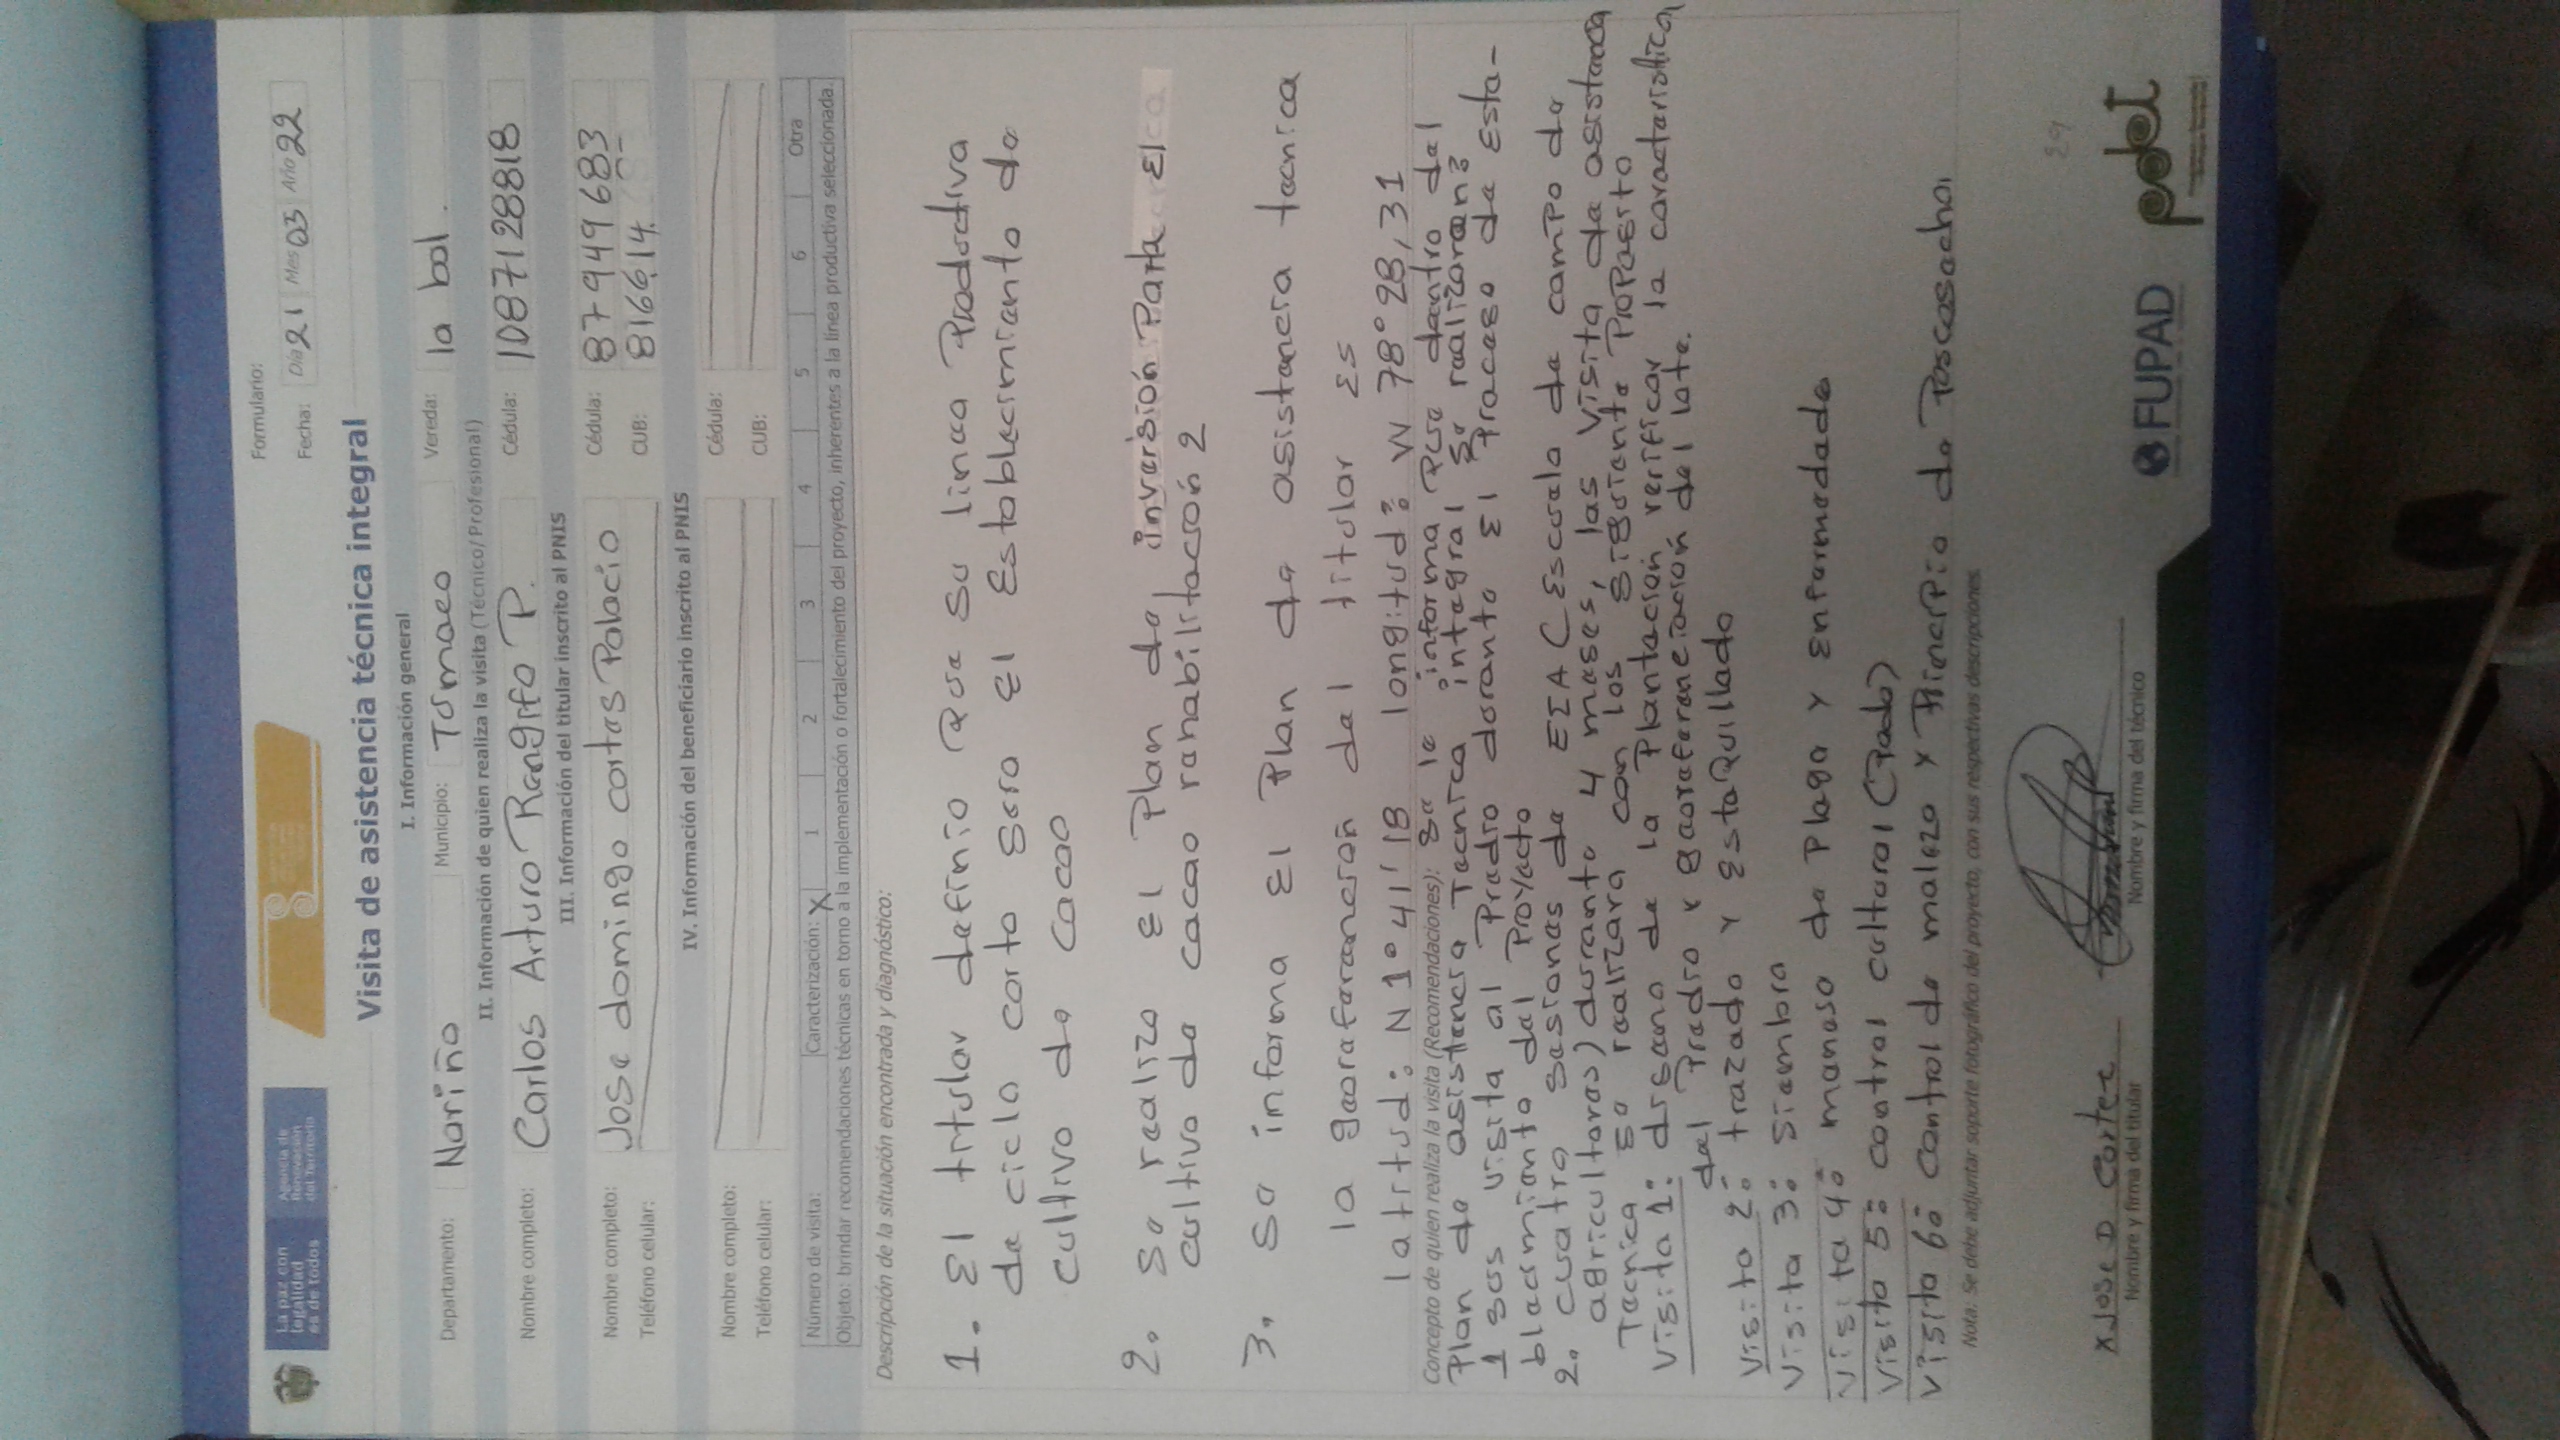 La paz con legalidad es de todos
Agencia de Renovación del Territorio
Formulario:
Fecha: Día 21 Mes 03 Año 22
Visita de asistencia técnica integral
I. Información general
Departamento: Nariño Municipio: Tumaco Vereda: la bal.
II. Información de quien realiza la visita (Técnico/Profesional)
Nombre completo: Carlos Arturo Rengifo P. Cédula: 1087128818
III. Información del titular inscrito al PNIS
Nombre completo: Jose domingo cortes Palacio Cédula: 87949683
Teléfono celular: CUB: 816614
IV. Información del beneficiario inscrito al PNIS
Nombre completo: Cédula:
Teléfono celular: CUB:
Número de visita: Caracterización: X 1 2 3 4 5 6 Otra
Objeto: brindar recomendaciones técnicas en torno a la implementación o fortalecimiento del proyecto, inherentes a la línea productiva seleccionada.
Descripción de la situación encontrada y diagnóstico:
1. El titular definio que su linea Productiva
de ciclo corto sera El Establecimiento de
cultivo de cacao
2. Se realizo El Plan de inversión Para El
cultivo de cacao rehabilitación 2
3. Se informa El Plan de asistencia tecnica
la georeferención del titular Es
latitud: N 1° 41' 18 longitud: W 78° 28, 31
Concepto de quien realiza la visita (Recomendaciones): se le informa Que dentro del
Plan de asistencia Tecnica integral se realizaran:
1 seis visita al Predio durante El Proceso de Esta-
blecimiento del Proyecto
2. cuatro sesiones de EEA (Escuela de campo de
agricultores) durante 4 meses, las visita de asistencia
Tecnica se realizara con los siguiente ProPosito
Visita 1: diseano de la Plantación verificar la caracteristica
del Predio y georeferenciación del lote.
Visita 2: trazado y EstaQuillado
Visita 3: siembra
Visita 4: manejo de Plaga y Enfermedade
Visita 5: control cultural (Poda)
Visita 6: control de maleza y Principio de Poscosecha
Nota. Se debe adjuntar soporte fotográfico del proyecto, con sus respectivas descripciones
X Jose D Cortes
Nombre y firma del titular
Nombre y firma del técnico
29
FUPAD
pdet